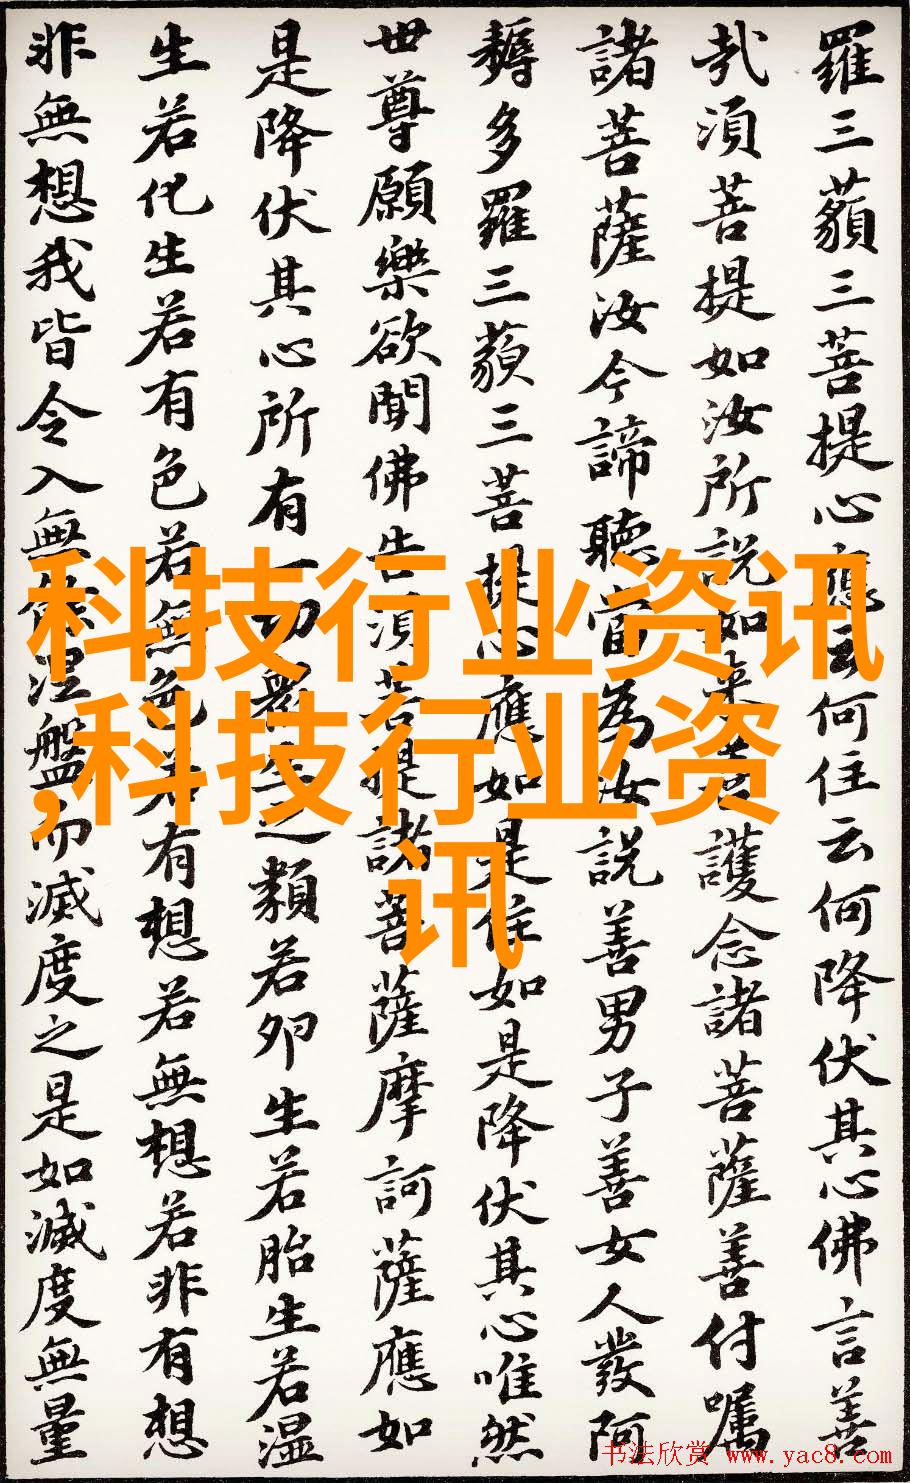 羅三藐三菩提心應云何住云何降伏其心佛言善
哉須菩提如汝所說如来善護念諸菩薩善付嘱
諸菩薩汝今諦聽當為汝説善男子善女人發阿
耨多羅三藐三菩提心應如是住如是降伏其心唯然
世尊願樂欲聞佛告須菩提諸菩薩摩訶薩應如
是降伏其心所有一切眾生之類若卵生若胎生若湿
生若化生若有色若無色若有想若無想若非有想
非無想我皆令入無餘涅盤而滅度之是如滅度無量
科技行业资讯
,科技行业资
讯
书法欣赏 www.yac8.com